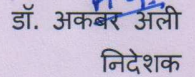 डॉ. अकबर अली
निदेशक